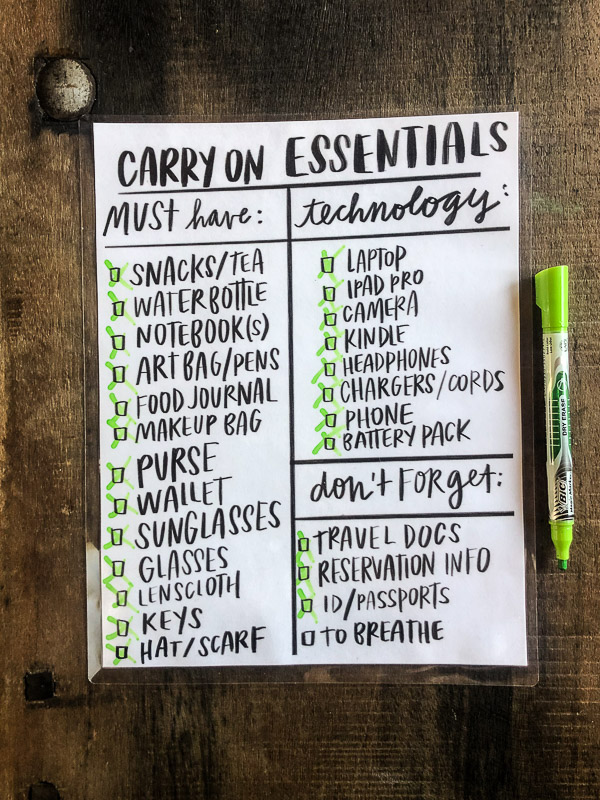 CARRY ON ESSENTIALS
MUST have:
SNACKS/TEA
WATERBOTTLE
NOTEBOOK(S)
ART BAG/PENS
FOOD JOURNAL
MAKEUP BAG
PURSE
WALLET
SUNGLASSES
GLASSES
LENSCLOTH
KEYS
HAT/SCARF
technology:
LAPTOP
IPAD PRO
CAMERA
KINDLE
HEADPHONES
CHARGERS/CORDS
PHONE
BATTERY PACK
don't FORget:
TRAVEL DOCS
RESERVATION INFO
ID/PASSPORTS
to BREATHE
DRY ERASE
BIC